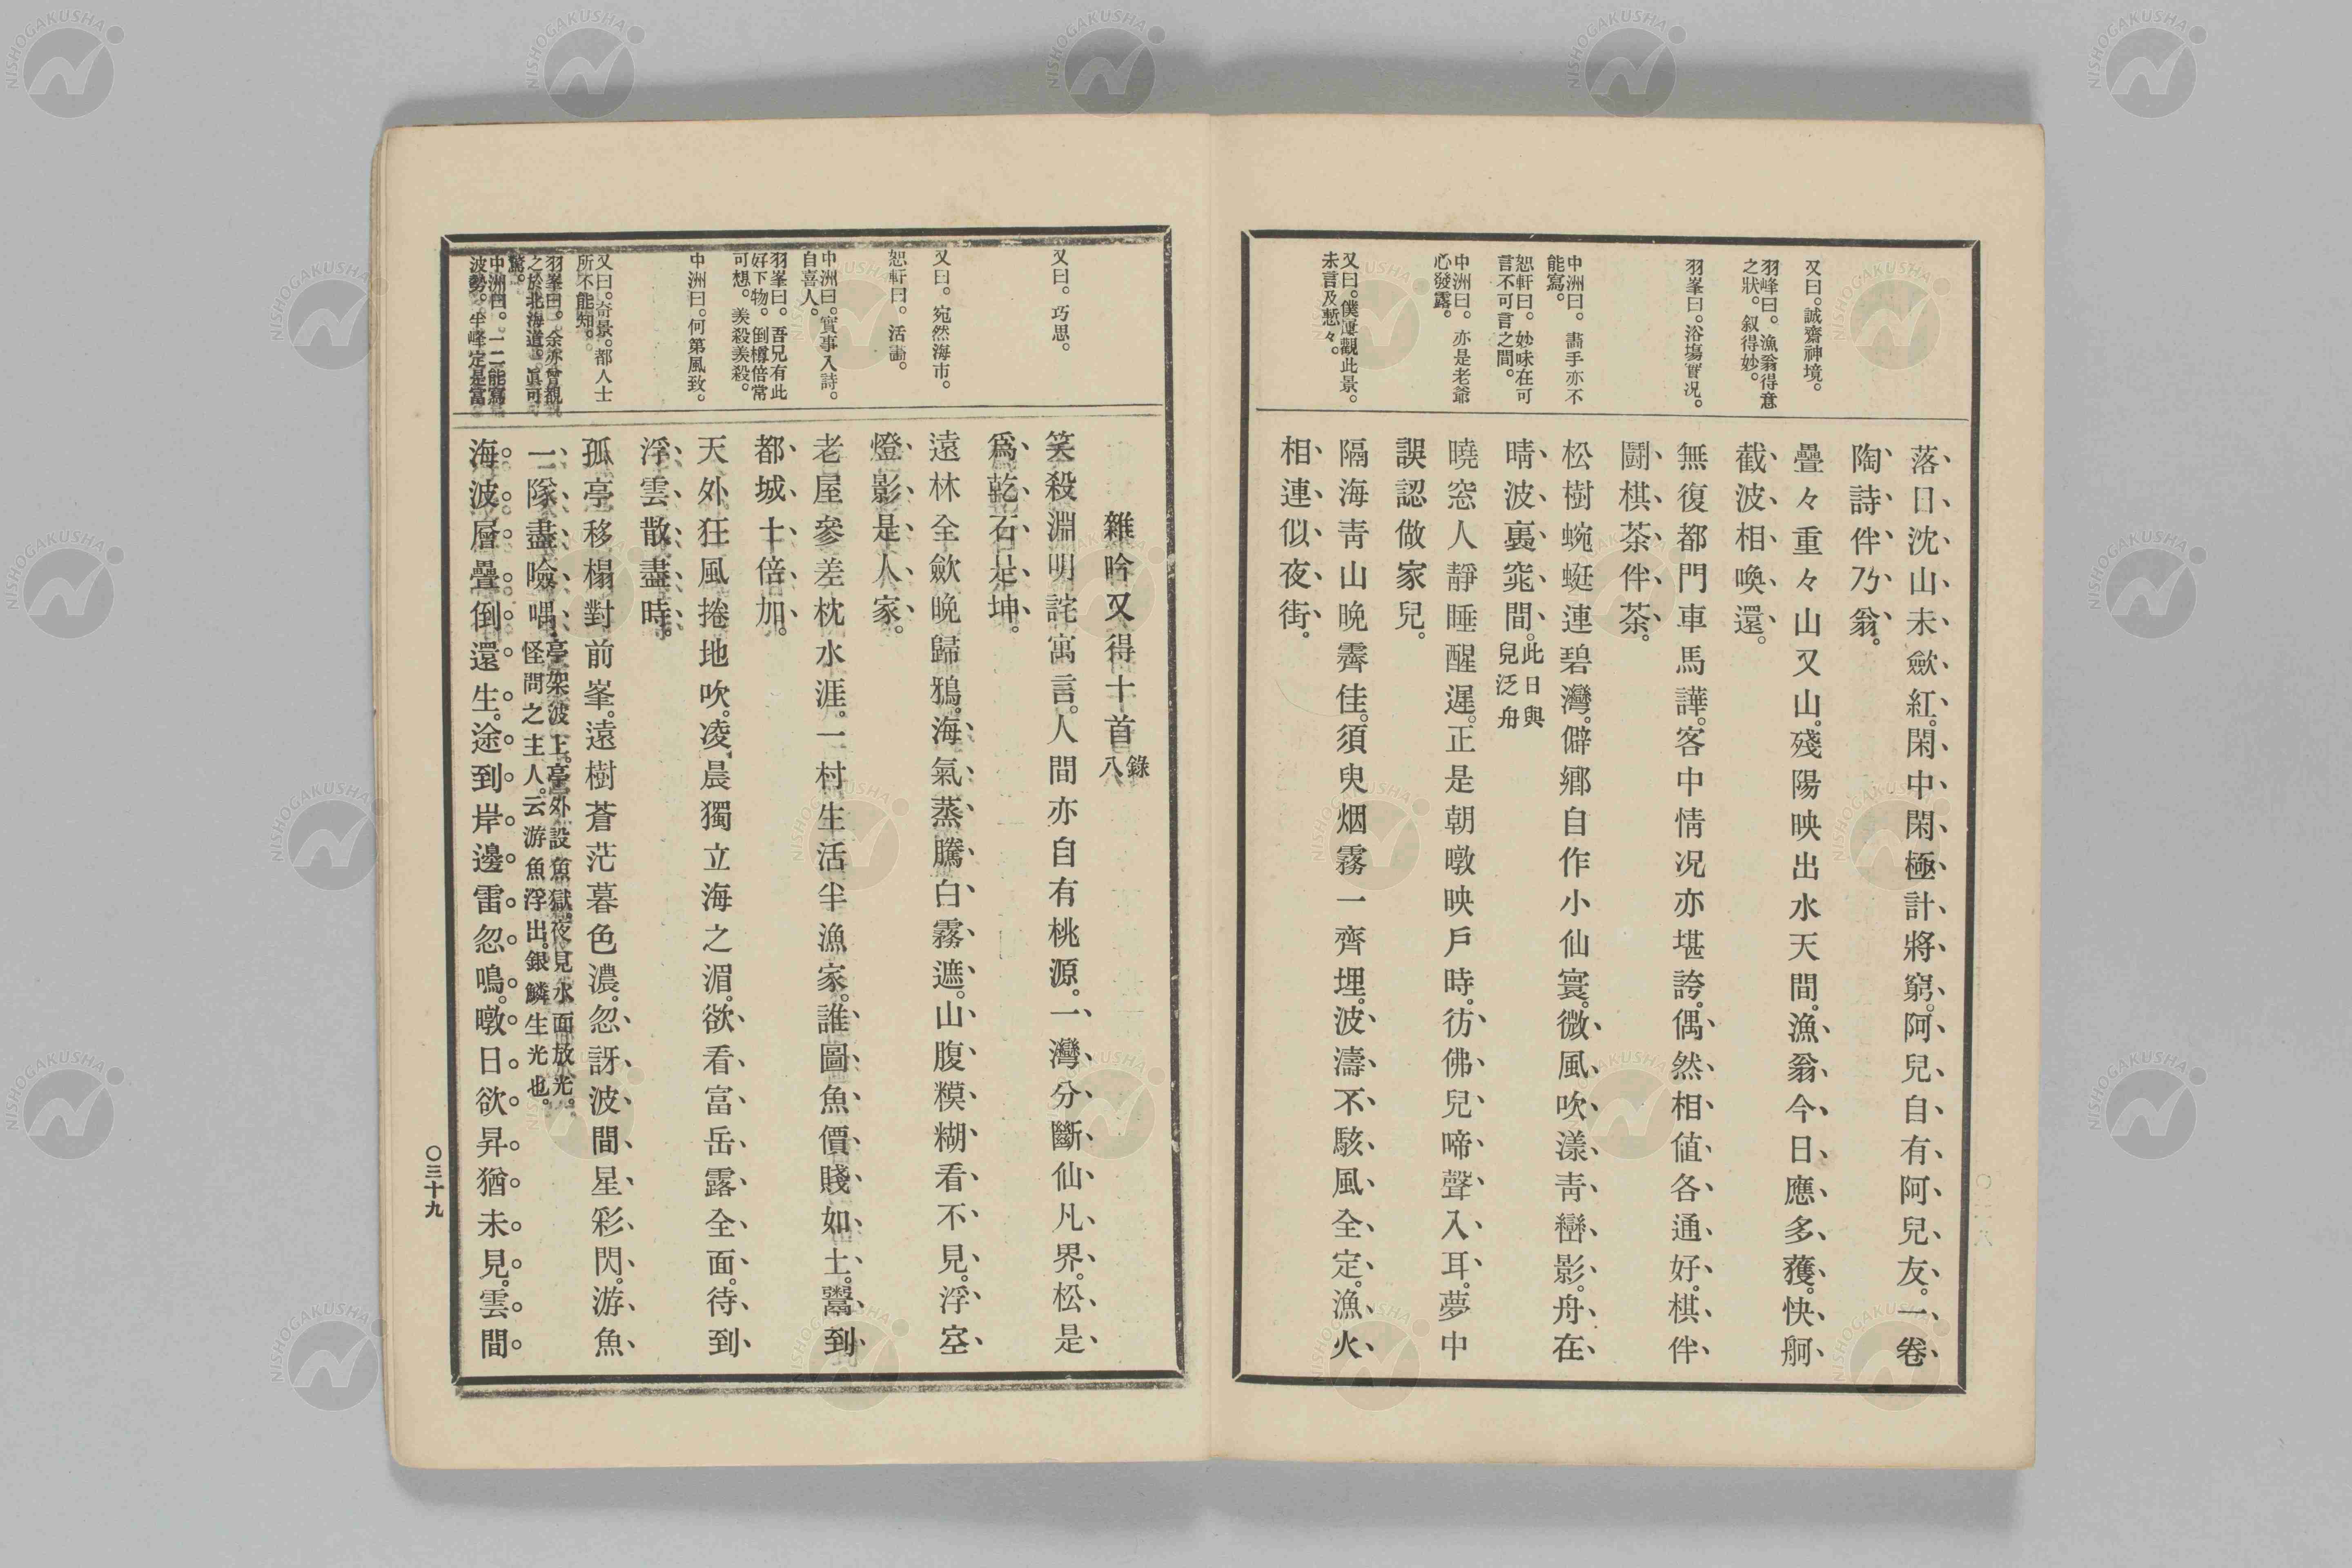 又曰。誠齋神境。
羽峰曰。漁翁得意
之狀。叙得妙。
羽峯曰。浴塲實況。
中洲曰。畵手亦不
能寫。
恕軒曰。妙味在可
言不可言之間。
中洲曰。亦是老爺
心發露。
又曰。僕屢觀此景。
未言及慙々。
落日沈山未歛紅。閑中閑極計將窮。阿兒自有阿兒友。一卷
陶詩伴乃翁。
疊々重々山又山。殘陽映出水天間。漁翁今日應多獲。快舸
截波相喚還。
無復都門車馬譁。客中情況亦堪誇。偶然相値各通好。棋伴
鬪棋茶伴茶。
松樹蜿蜒連碧灣。僻鄕自作小仙寰。微風吹漾靑巒影。舟在
晴波裏窕間。此日與
兒泛舟
曉窓人靜睡醒遲。正是朝暾映戶時。彷佛兒啼聲入耳。夢中
誤認做家兒。
隔海靑山晩霽佳。須臾烟霧一齊埋。波濤不駭風全定。漁火
相連似夜街。
又曰。巧思。
又曰。宛然海市。
恕軒曰。活畵。
中洲曰。實事入詩。
自喜人。
羽峯曰。吾兄有此
好下物。倒樽倍常
可想。羨殺羨殺。
中洲曰。何第風致。
又曰。奇景。都人士
所不能知。
羽峯曰。余亦曾観
之於北海道。眞可
驚。
中洲曰。一二能寫
波勢。半峰定是富
雜吟又得十首錄
八
笑殺淵明詫寓言。人間亦自有桃源。一灣分斷仙凡界。松是
爲乾石是坤。
遠林全歛晩歸鴉。海氣蒸騰白霧遮。山腹糢糊看不見。浮空
燈影是人家。
老屋參差枕水涯。一村生活半漁家。誰圖魚價賤如土。鬻到
都城十倍加。
天外狂風捲地吹。凌晨獨立海之湄。欲看富岳露全面。待到
浮雲散盡時。
孤亭移榻對前峯。遠樹蒼茫暮色濃。忽訝波間星彩閃。游魚
一隊盡噞喁。亭架波上。亭外設魚獄。夜見水面放光。
怪問之主人。云游魚浮出。銀鱗生光也。
海波層疊倒還生。途到岸邊雷忽鳴。暾日欲昇猶未見。雲間
〇三十九